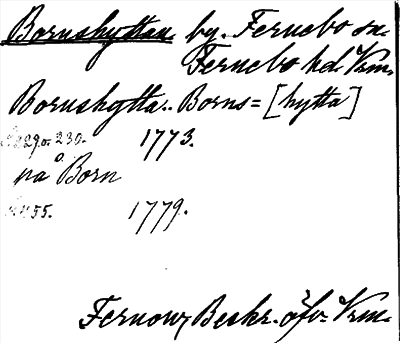 Bornshyttan by. Fernebo sn.
Fernebo hd. Vrm.
Bornshytta. Borns=[hytta]
229 o. 230. 1773.
på Born
55. 1779.
Fernow, Beskr. öfv. Vrm.